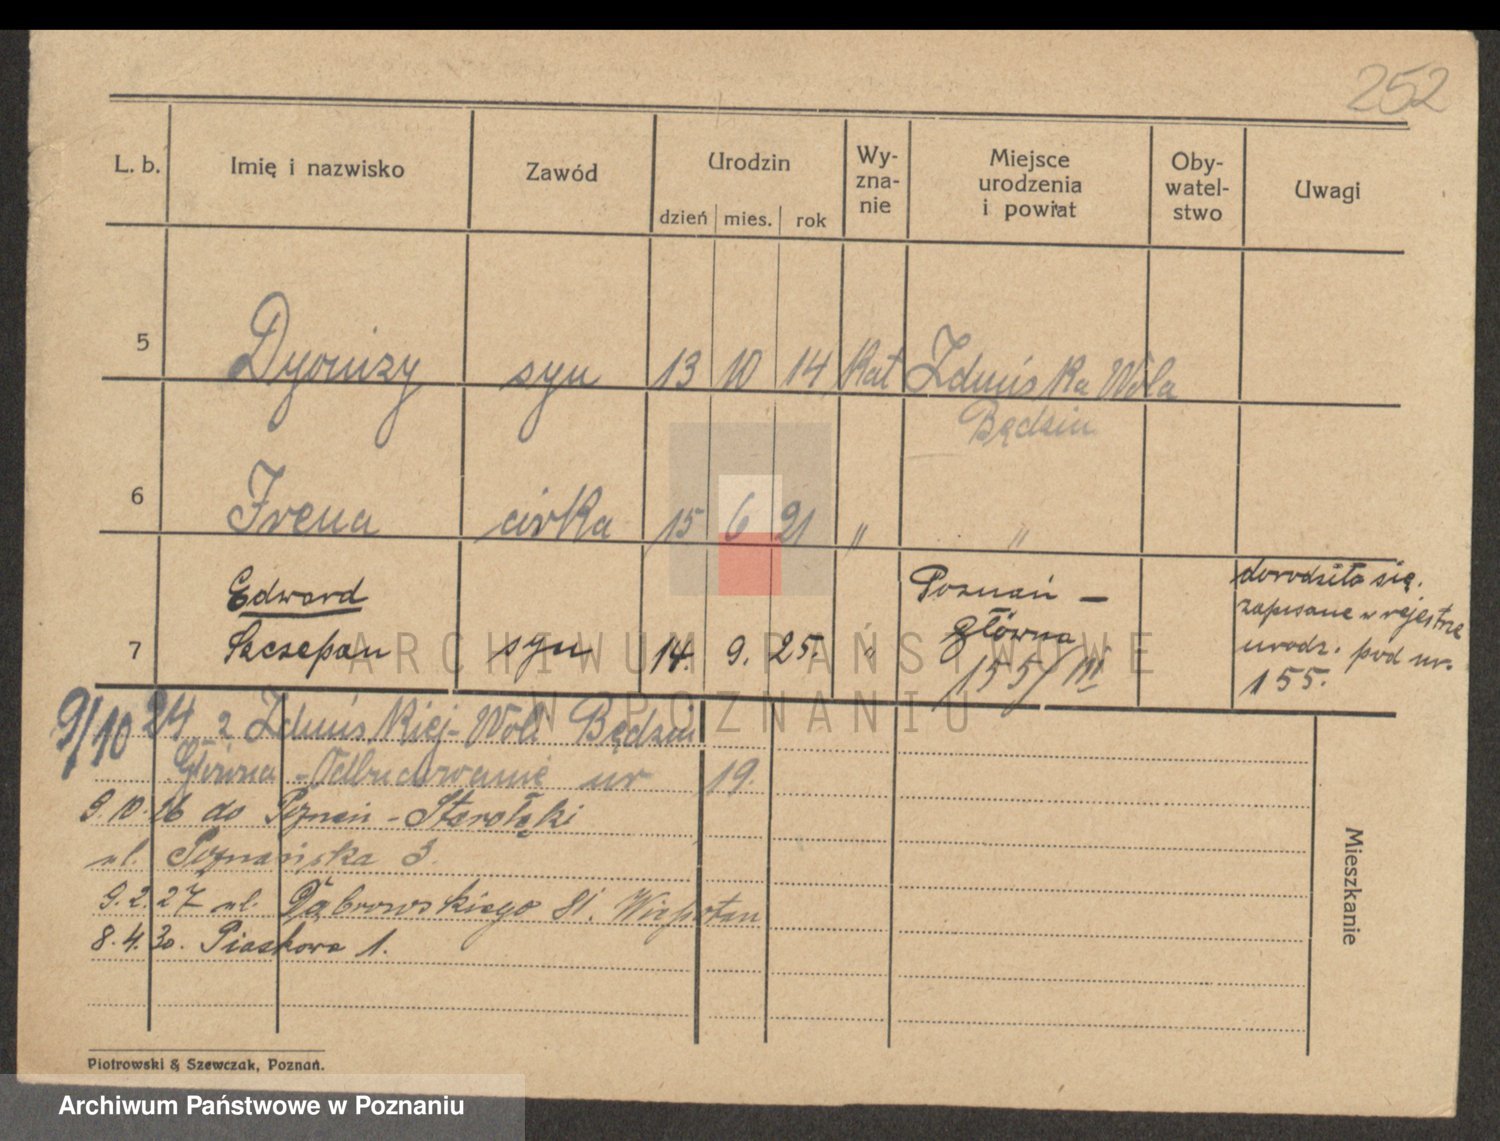 252
L. b. Imię i nazwisko Zawód Urodzin Wy- Miejsce Oby- Uwagi
zna- urodzenia watel-
nie i powiat stwo
dzień mies. rok
5 Dyonizy syn 13 10 14 Kat Zduńska Wola
Będzin
6 Irena córka 15 6 21 " "
Edward Poznań - dorodziło się.
zapisane w rejestrze
7 Szczepan syn 14. 9. 25. " Główna urodz. pod nr.
155/III 155.
ARCHIWUM PAŃSTWOWE
W POZNANIU
9/10 24 z Zduńskiej-Woli Będzin
Główna - nr 19.
9.10.26 do Poznań - Starołęki
ul. Poznańska 3.
9.2.27 ul. Dąbrowskiego 81.
8.4.30. Piaskowa 1.
Mieszkanie
Piotrowski & Szewczak, Poznań.
Archiwum Państwowe w Poznaniu